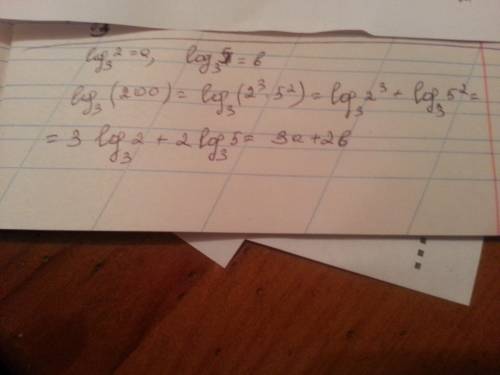 log₃2 = a, log₃5 = b
log₃(200) = log₃(2³·5²) = log₃2³ + log₃5² =
= 3 log₃2 + 2 log₃5 = 3a + 2b